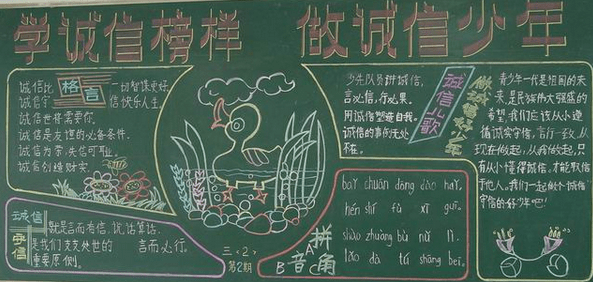 学诚信榜样 做诚信少年
格言
诚信比一切智谋更好
诚信守信快乐人生
诚信也将需要你.
诚信是友谊的必备条件.
诚信为荣,失信可耻.
诚信创造财富
诚信
守信
就是言而有信,说话算话.
是我们支处世的 言而必行.
重要原则.
三〈2〉
第2期
少先队员讲诚信,
言必信,行必果.
用诚信塑造自我.
诚信的事例无处
不在.
诚信儿歌
做诚信好少年
青少年一代是祖国的未
来,是民族伟大强盛的
希望,我们应该从小遵
循诚实守信,言行一致,从
现在做起,从我做起,只
有从小懂得诚信,才能取信
于他人,我们一起做个"诚信"
守信的好少年吧!
拼
音
角
A
B
bǎi chuān dōng dào hǎi,
hén shí fù xī guī.
shào zhuàng bù nǔ lì.
lǎo dà tú shāng bēi.